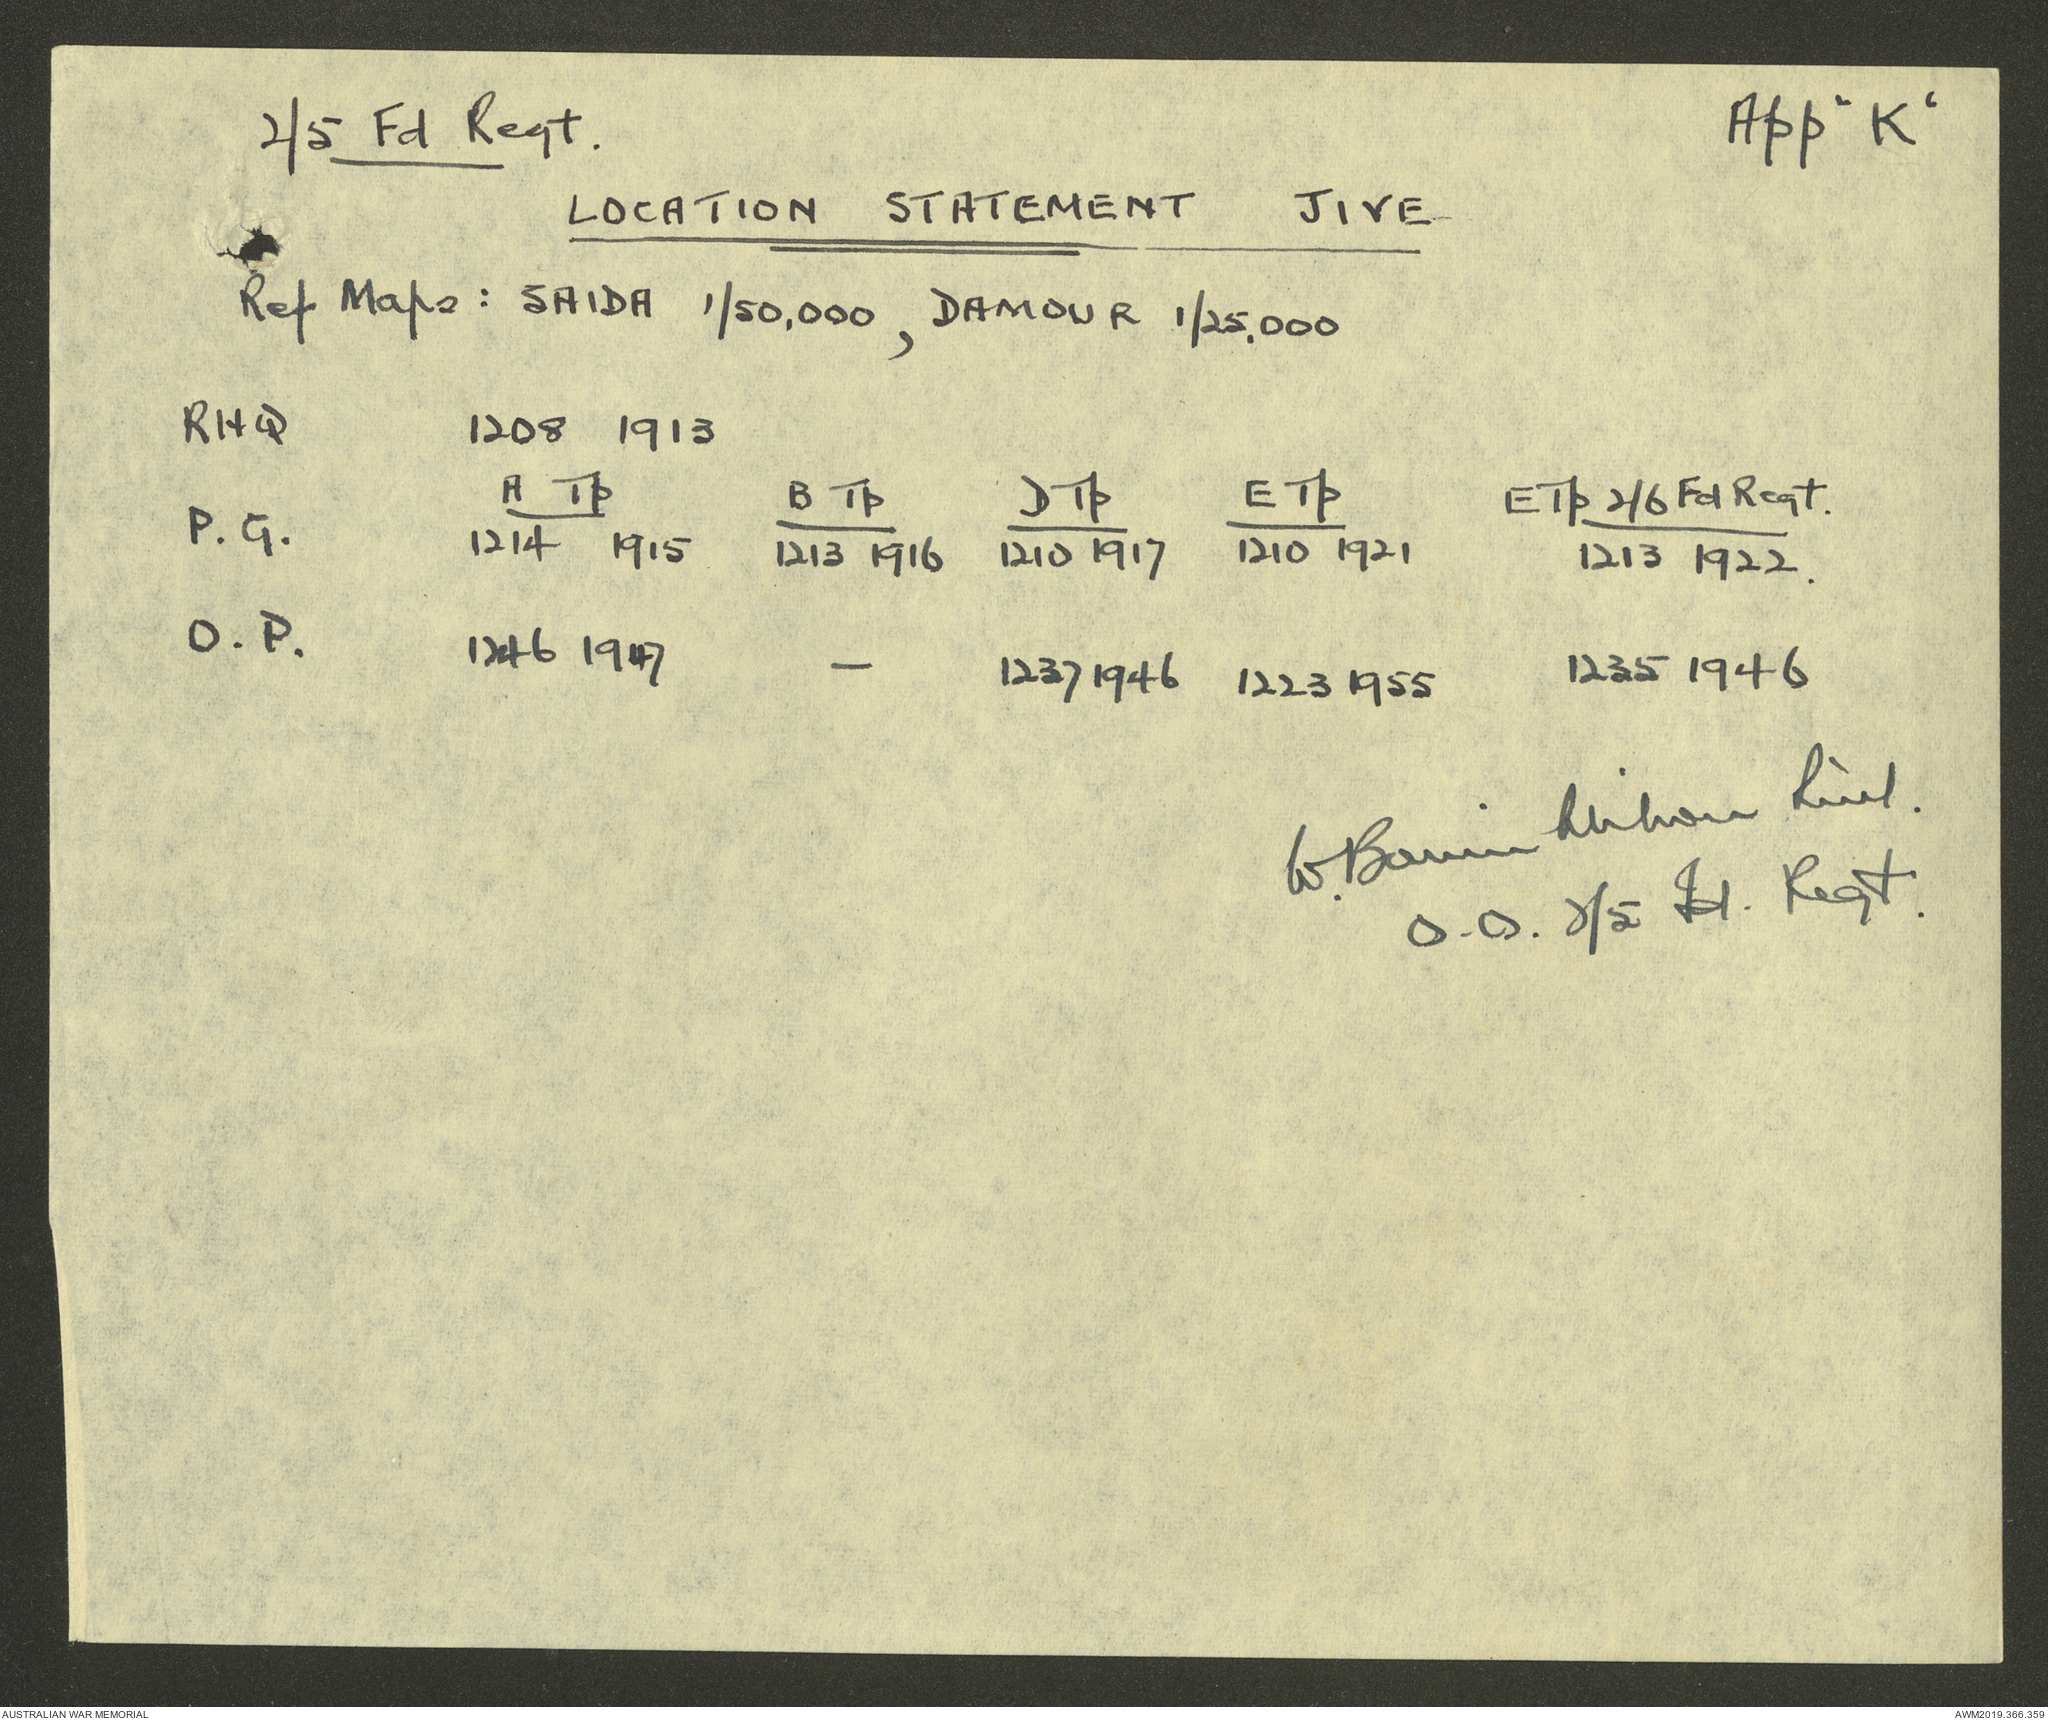 2/5 Fd Regt. App "K"
LOCATION STATEMENT JIVE
Ref Maps: SAIDA 1/50,000, DAMOUR 1/25,000
RHQ 1208 1913
A Tp B Tp D Tp E Tp E Tp 2/6 Fd Regt.
P. G. 1214 1915 1213 1916 1210 1917 1210 1921 1213 1922.
O. P. 1246 1947 — 1237 1946 1223 1955 1235 1946
W. Lieut.
O.O. 2/5 Fd. Regt.
AUSTRALIAN WAR MEMORIAL AWM2019.366.359